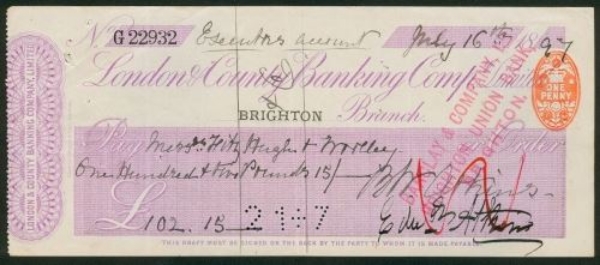 No G 22932 Executors account July 16th 1897
London & County Banking Company, Limited
BRIGHTON Branch.
Pay Messrs Fitz Hugh & Woolley Order
One Hundred & two Pounds 15/-
£102. 15
LONDON & COUNTY BANKING COMPANY, LIMITED
ONE PENNY
BARCLAY & COMPANY,
BRIGHTON UNION BANK,
BRIGHTON.
THIS DRAFT MUST BE SIGNED ON THE BACK BY THE PARTY TO WHOM IT IS MADE PAYABLE